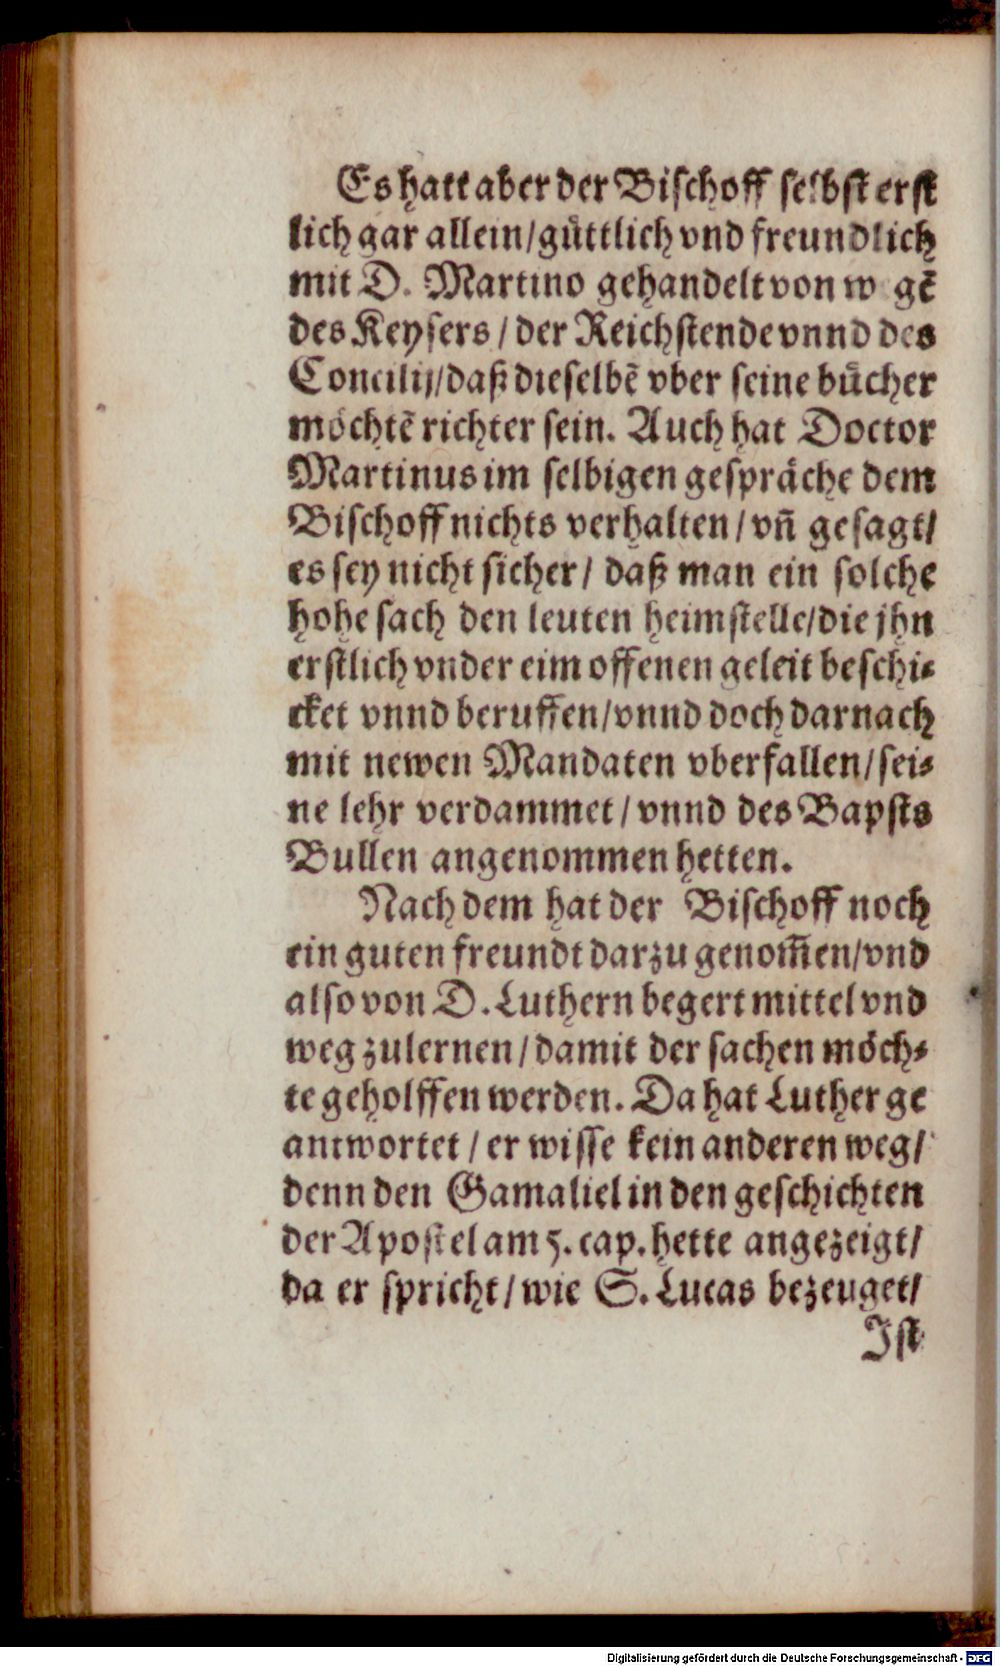 Es hatt aber der Bischoff selbst erst
lich gar allein/ guͤttlich vnd freundlich
mit D. Martino gehandelt von w gē
des Keysers/ der Reichstende vnnd des
Concilij/ daß dieselbē vber seine buͤcher
moͤchtē richter sein. Auch hat Doctor
Martinus im selbigen gespraͤche dem
Bischoff nichts verhalten/ vn̄ gesagt/
es sey nicht sicher/ daß man ein solche
hohe sach den leuten heimstelle/ die jhn
erstlich vnder eim offenen geleit beschi-
cket vnnd beruffen/ vnnd doch darnach
mit newen Mandaten vberfallen/ sei-
ne lehr verdammet/ vnnd des Bapsts
Bullen angenommen hetten.
Nach dem hat der Bischoff noch
ein guten freundt darzu genom̄en/ vnd
also von D. Luthern begert mittel vnd
weg zulernen/ damit der sachen moͤch-
te geholffen werden. Da hat Luther ge
antwortet/ er wisse kein anderen weg/
denn den Gamaliel in den geschichten
der Apostel am 5. cap. hette angezeigt/
da er spricht/ wie S. Lucas bezeuget/
Ist
Digitalisierung gefördert durch die Deutsche Forschungsgemeinschaft - DFG